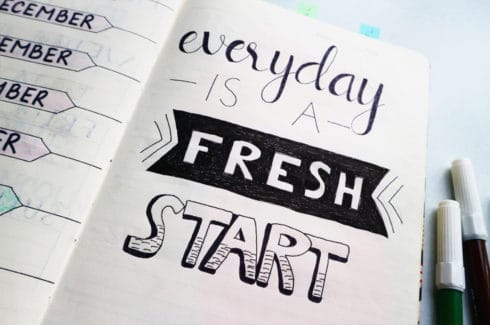 DECEMBER
EMBER
MBER
ER
everyday
IS A
FRESH
START